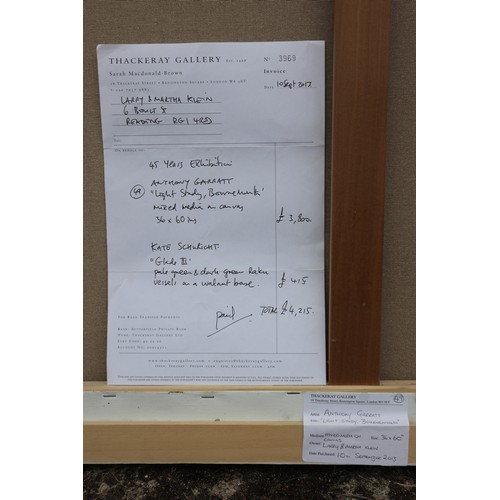 THACKERAY GALLERY EST. 1968
Sarah Macdonald-Brown
18 THACKERAY STREET • KENSINGTON SQUARE • LONDON W8 5ET
Nº 3969
Invoice
DATE 10 Sept 2013
LARRY & MARTHA KLEIN
6 BOULT ST
READING RG1 4RD
45 YEARS EXHIBITION
49
ANTHONY GARRATT
"Light Study, Bournemouth"
mixed media on canvas
36 x 60 ins
£ 3,800
KATE SCHURICHT
"Glade III"
pale green & dark green raku
vessels on a walnut base.
£ 415
paid
TOTAL £4,215.
FOR BANK TRANSFER PAYMENTS:
www.thackeraygallery.com • enquiries@thackeraygallery.com
THACKERAY GALLERY
18 Thackeray Street, Kensington Square, London W8 5ET
49
Artist ANTHONY GARRATT
Title "LIGHT STUDY, BOURNEMOUTH"
Medium MIXED MEDIA ON
CANVAS
Size 36 x 60"
Owner LARRY & MARTHA KLEIN
Date Purchased 10th SEPTEMBER 2013